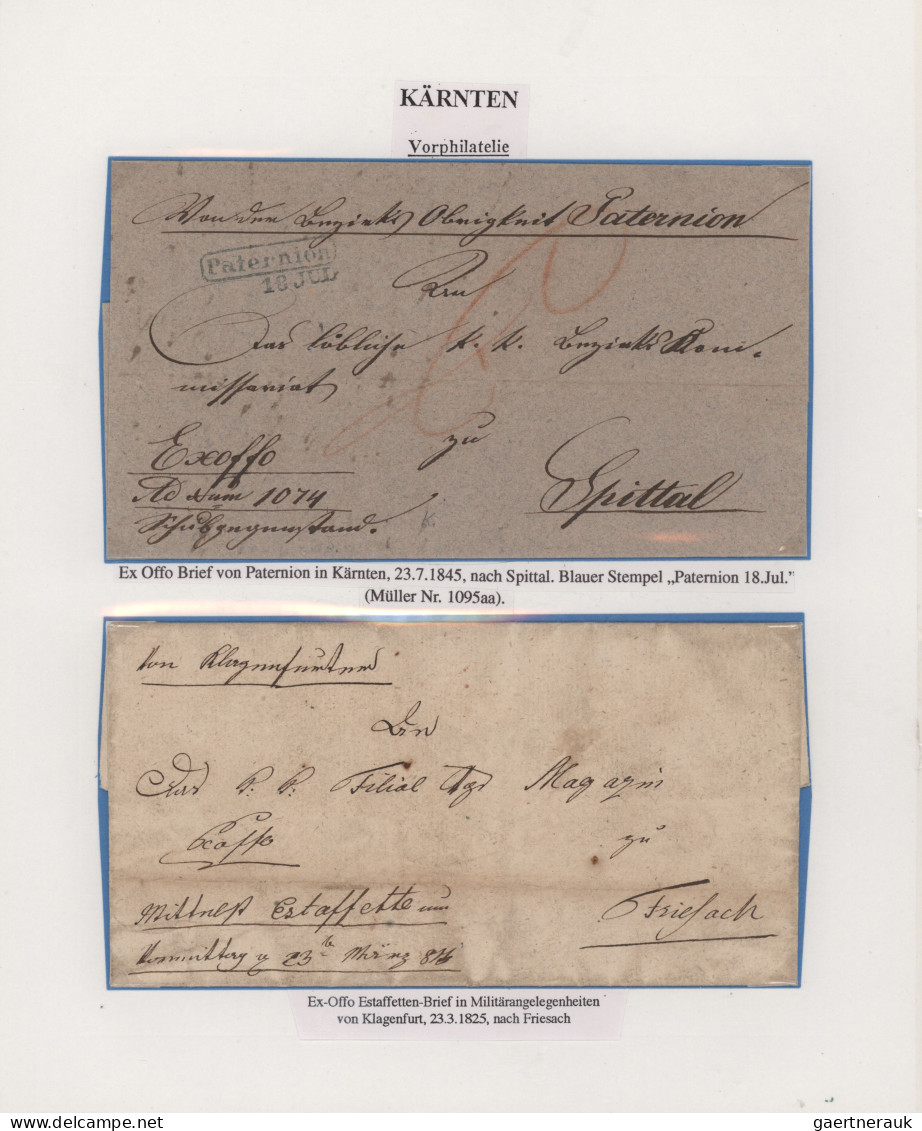 KÄRNTEN
Vorphilatelie
Von der Bezirks Obrigkeit Paternion
Paternion
18 JUL
An
Das löbliche k. k. Bezirks Kom-
missariat
zu
Exoffo
Ad Num 1074
Spittal
Schubgegenstand.
Ex Offo Brief von Paternion in Kärnten, 23.7.1845, nach Spittal. Blauer Stempel „Paternion 18.Jul.”
(Müller Nr. 1095aa).
Von Klagenfurt
An
Das k. k. Filial Magazin
Exoffo
zu
Mittelst Estaffette um
Friesach
Vormittag 23 März
Ex-Offo Estaffetten-Brief in Militärangelegenheiten
von Klagenfurt, 23.3.1825, nach Friesach
gaertnerauk